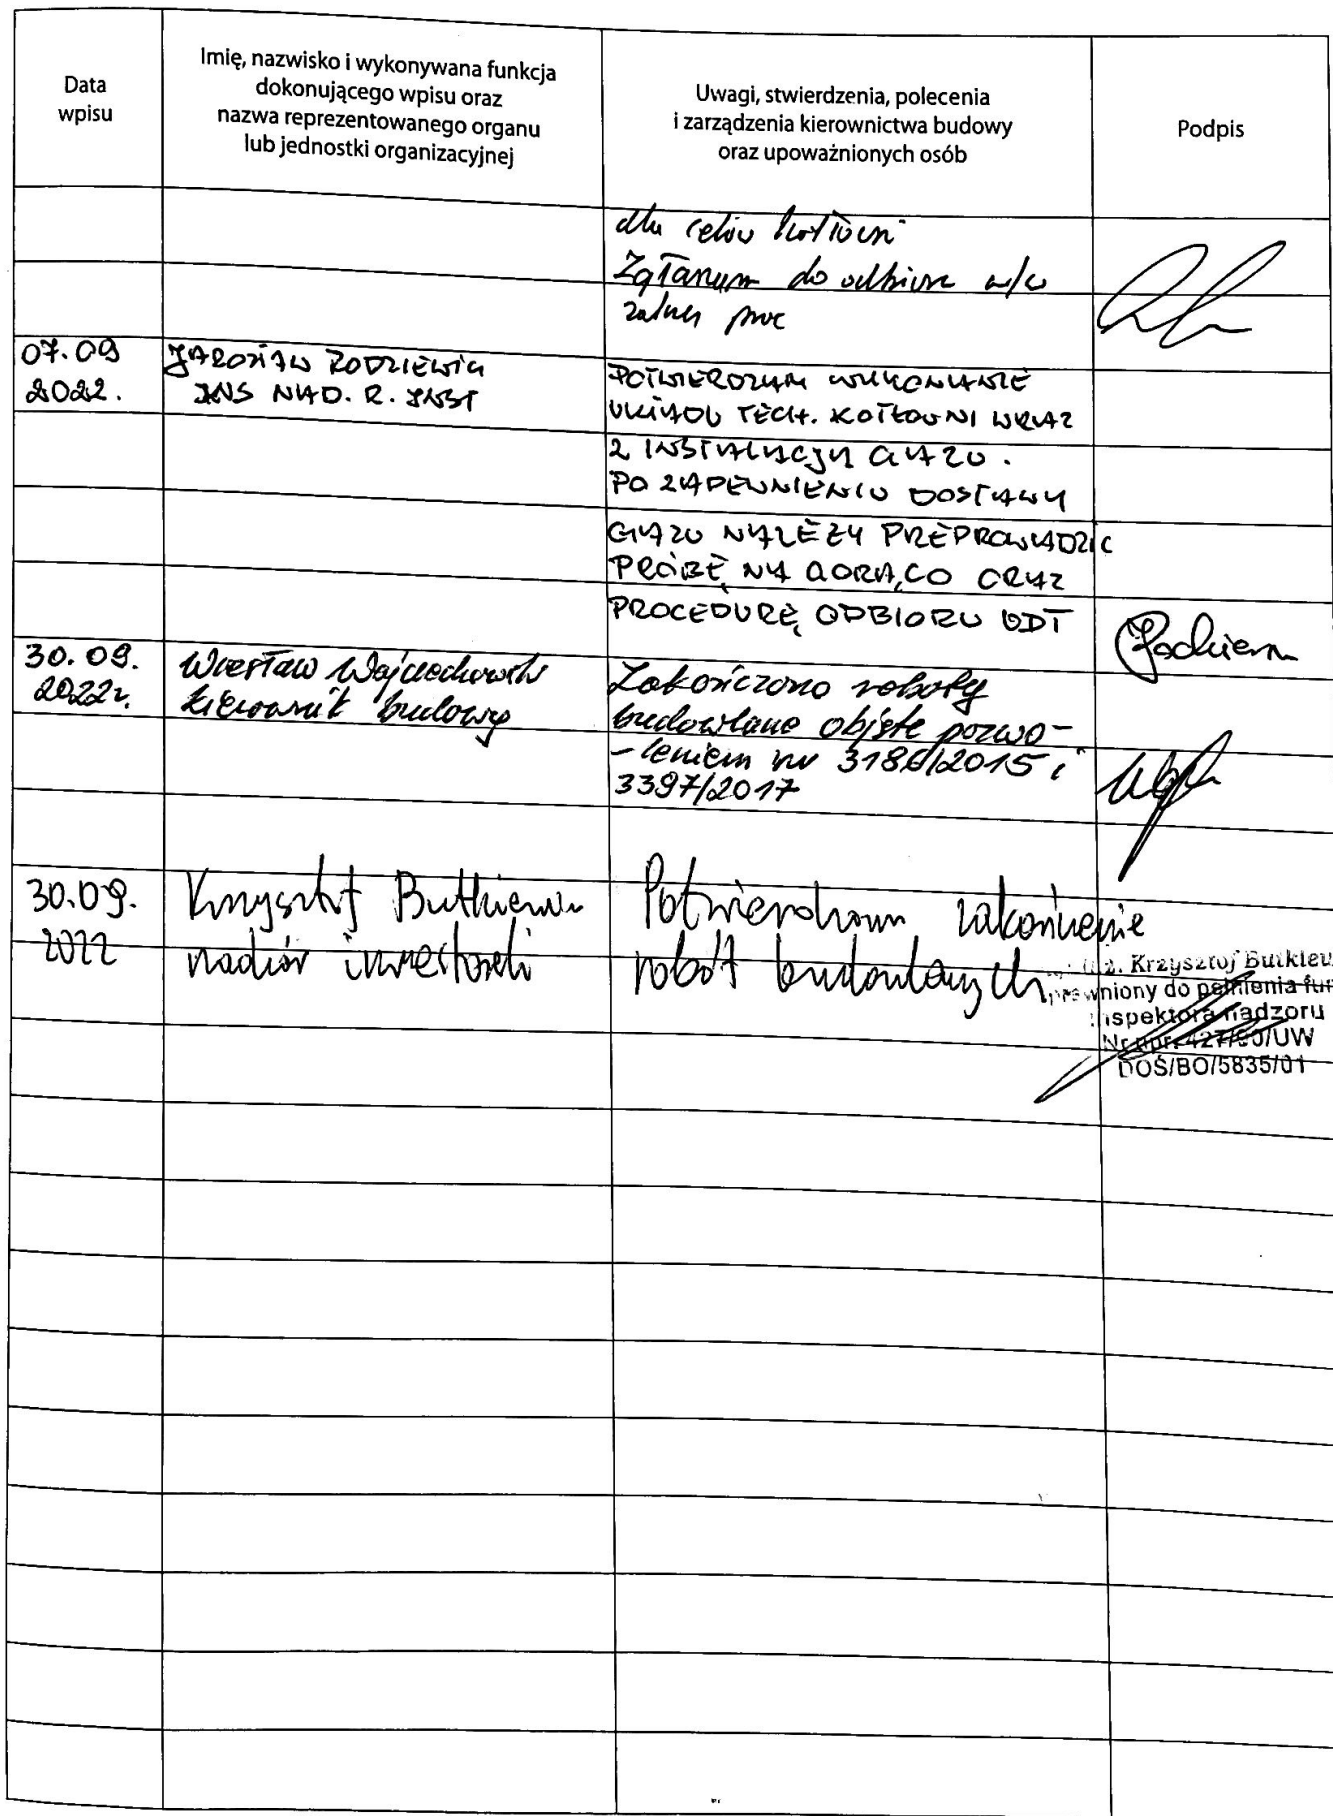 Data
wpisu
Imię, nazwisko i wykonywana funkcja
dokonującego wpisu oraz
nazwa reprezentowanego organu
lub jednostki organizacyjnej
Uwagi, stwierdzenia, polecenia
i zarządzenia kierownictwa budowy
oraz upoważnionych osób
Podpis
dla celów kotłowni
Zgłaszam do odbioru w/w
zakres prac
07.09
2022.
JAROSŁAW RODZIEWICZ
INS NAD. R. INST
POTWIERDZAM WYKONANIE
UKŁADU TECH. KOTŁOWNI WRAZ
Z INSTALACJĄ GAZU.
PO ZAPEWNIENIU DOSTAWY
GAZU NALEŻY PREPROWADZIC
PRÓBĘ NA GORĄCO ORAZ
PROCEDURĘ ODBIORU UDT
30.09.
2022r.
Wiesław Wojciechowski
kierownik budowy
Zakończono roboty
budowlane objęte pozwo-
-leniem nr 3186/2015 i
3397/2017
30.09.
2022
Krzysztof Butkiewicz
nadzór inwestorski
Potwierdzam zakończenie
robót budowlanych
inż. Krzysztof Butkiew
prawniony do pełnienia fun
inspektora nadzoru
Nr upr. 427/90/UW
DOŚ/BO/5835/01